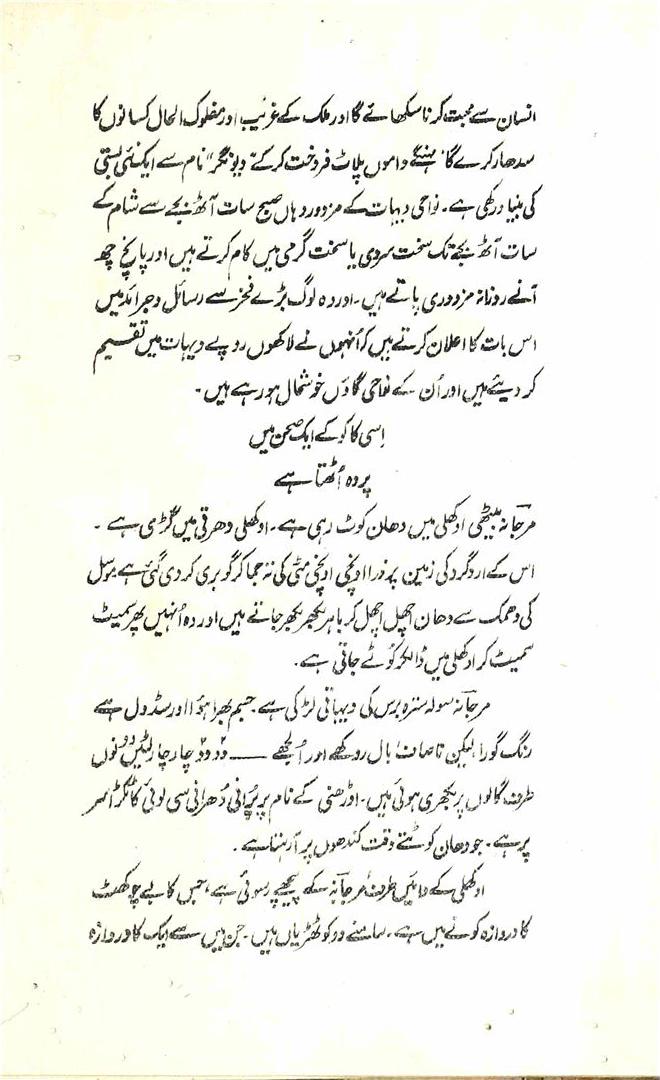 انسان سے محبت کرنا سکھائے گا اور ملک کے غریب اور مفلوک الحال کسانوں کا
سدھار کرے گا، مہنگے داموں پلاٹ فروخت کر کے "دیو نگر" نام سے ایک نئی بستی
کی بنیاد رکھی ہے۔ نواحی دیہات کے مزدور وہاں صبح سات آٹھ بجے سے شام کے
سات آٹھ بجے تک سخت سردی یا سخت گرمی میں کام کرتے ہیں اور پانچ چھ
آنے روزانہ مزدوری پاتے ہیں۔ اور وہ لوگ بڑے فخر سے رسائل و جرائد میں
اس بات کا اعلان کرتے ہیں کہ اُنہوں نے لاکھوں روپے دیہات میں تقسیم
کر دیئے ہیں اور اُن کے نواحی گاؤں خوشحال ہو رہے ہیں۔
اِسی کا کو کے ایک صحن میں
پردہ اُٹھتا ہے
مرجانہ بیٹھی اوکھلی میں دھان کوٹ رہی ہے۔ اوکھلی دھرتی میں گڑی ہے۔
اس کے اردگرد کی زمین پر ذرا اونچی اونچی مٹی کی تہ جما کر گوبری کر دی گئی ہے موسل
کی دھمک سے دھان اچھل اچھل کر باہر بکھر بکھر جاتے ہیں اور وہ اُنہیں پھر سمیٹ
سمیٹ کر اوکھلی میں ڈالکر کوٹے جاتی ہے۔
مرجانہ سولہ سترہ برس کی دیہاتی لڑکی ہے۔ جسم بھرا ہوا اور سڈول ہے
رنگ گورا، لیکن ناصاف! بال روکھے اور اُلجھے —— دو دو چار چار لٹیں دونوں
طرف گالوں پر بکھری ہوئی ہیں۔ اوڑھنی کے نام پر پُرانی دُھرانی سی لوئی کا ٹکڑا سر
پر ہے۔ جو دھان کوٹتے وقت کندھوں پر آ رہتا ہے۔
اوکھلی کے دائیں طرف مرجانہ کے پیچھے رسوئی ہے، جس کا بے چوکھٹ
کا دروازہ کونے میں ہے۔ سامنے دو کوٹھڑیاں ہیں۔ جن میں سے ایک کا دروازہ